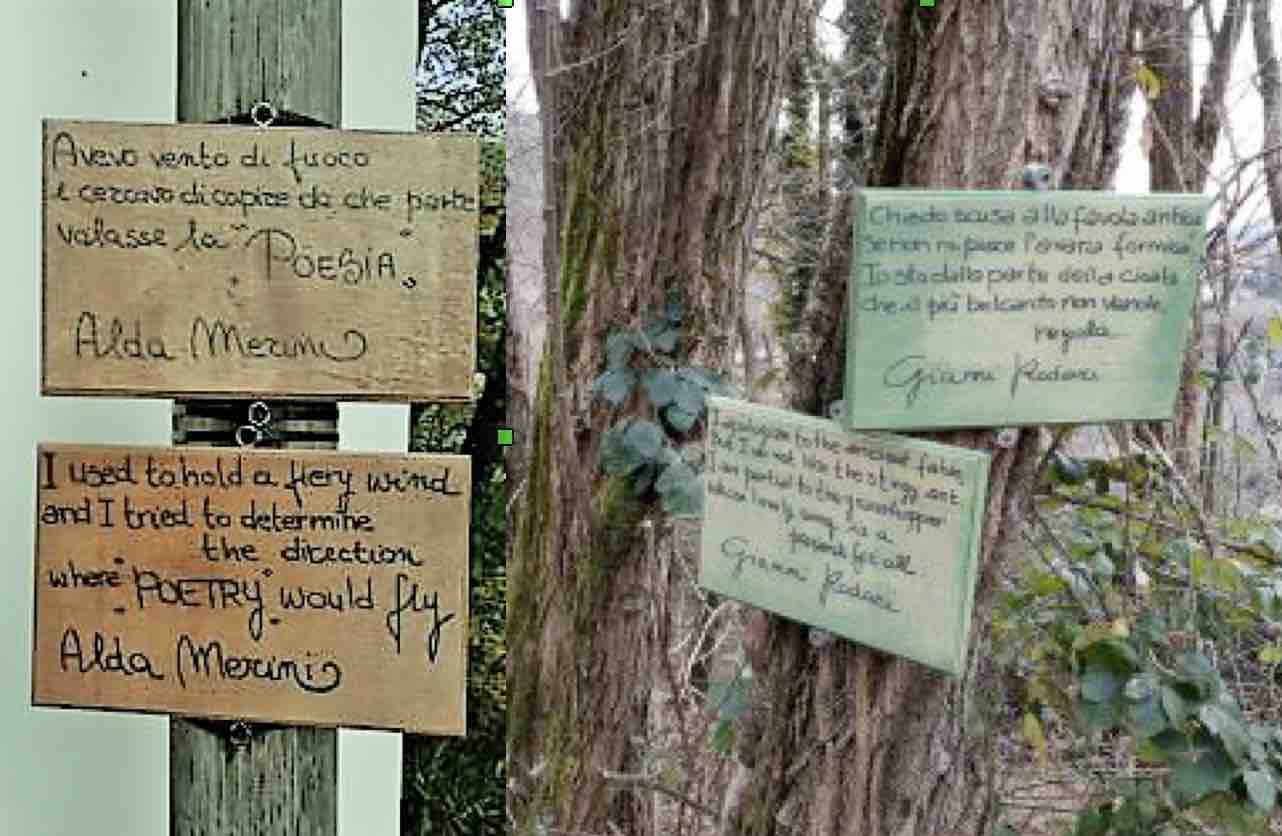 Avevo vento di fuoco
e cercavo di capire da che parte
volasse la "POESIA"
Alda Merini
I used to hold a fiery wind
and I tried to determine
the direction
where "POETRY" would fly
Alda Merini
Chiedo scusa alla favola antica
se non mi piace l'avara formica
Io sto dalla parte della cicala
che il più bel canto non vende
regala
Gianni Rodari
I apologise to the ancient fable
but I do not like the stingy ant
I am partial to the grasshopper
whose lovely song is a
present for all
Gianni Rodari